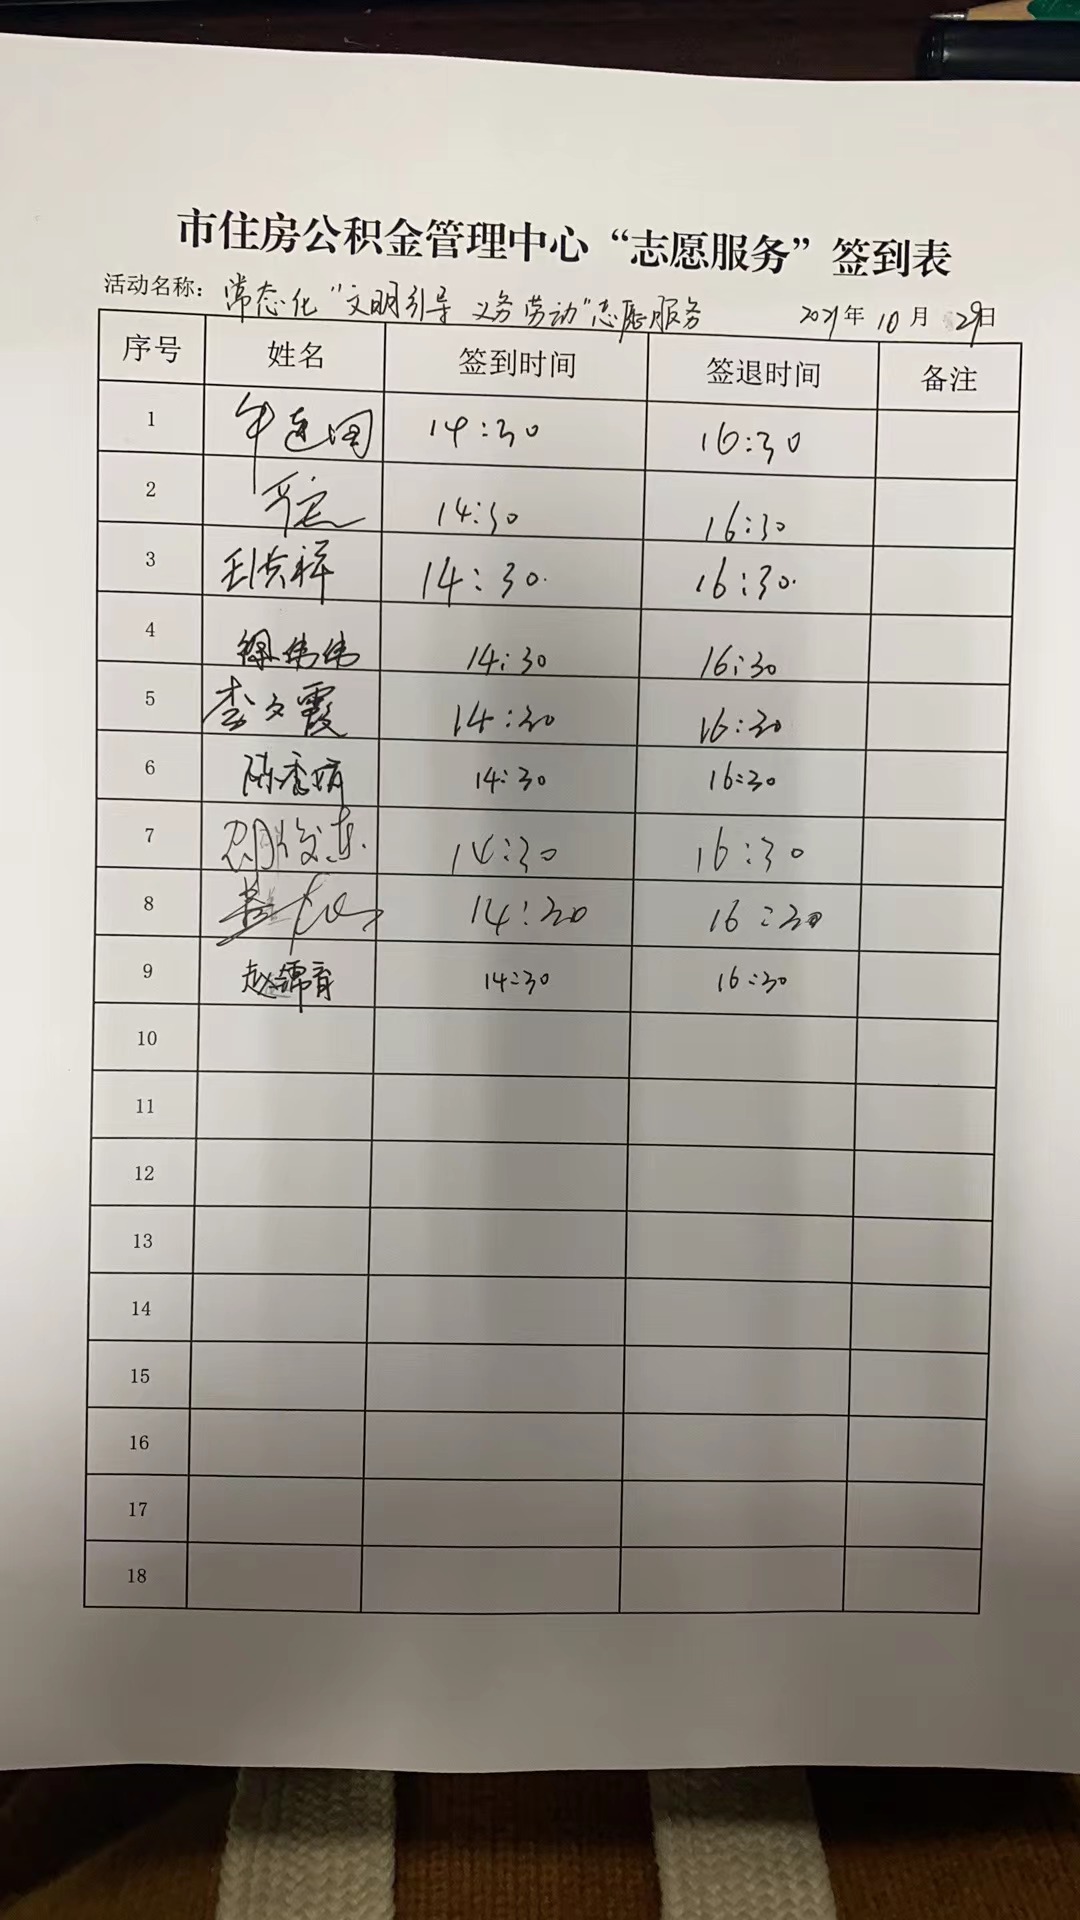 市住房公积金管理中心“志愿服务”签到表
活动名称：常态化“文明引导 义务劳动”志愿服务 2021年10月29日
序号 姓名 签到时间 签退时间 备注
1 牛连国 14:30 16:30
2 14:30 16:30
3 14:30. 16:30.
4 徐伟伟 14:30 16:30
5 李文霞 14:30 16:30
6 陈香娟 14:30 16:30
7 14:30 16:30
8 14:30 16:30
9 赵锦育 14:30 16:30
10
11
12
13
14
15
16
17
18